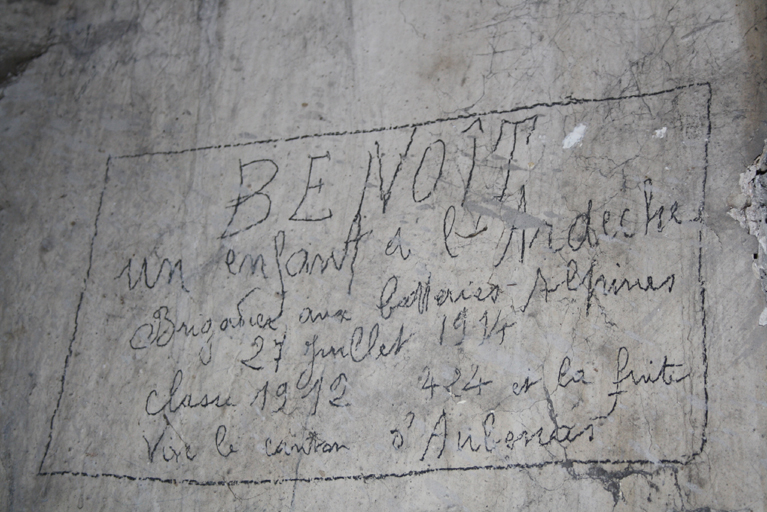 BENOÎT
un enfant à l'Ardèche
Brigadier aux batteries Alpines
27 Juillet 1914
classe 1912 424 et la fuite
Vive le canton d'Aubenas